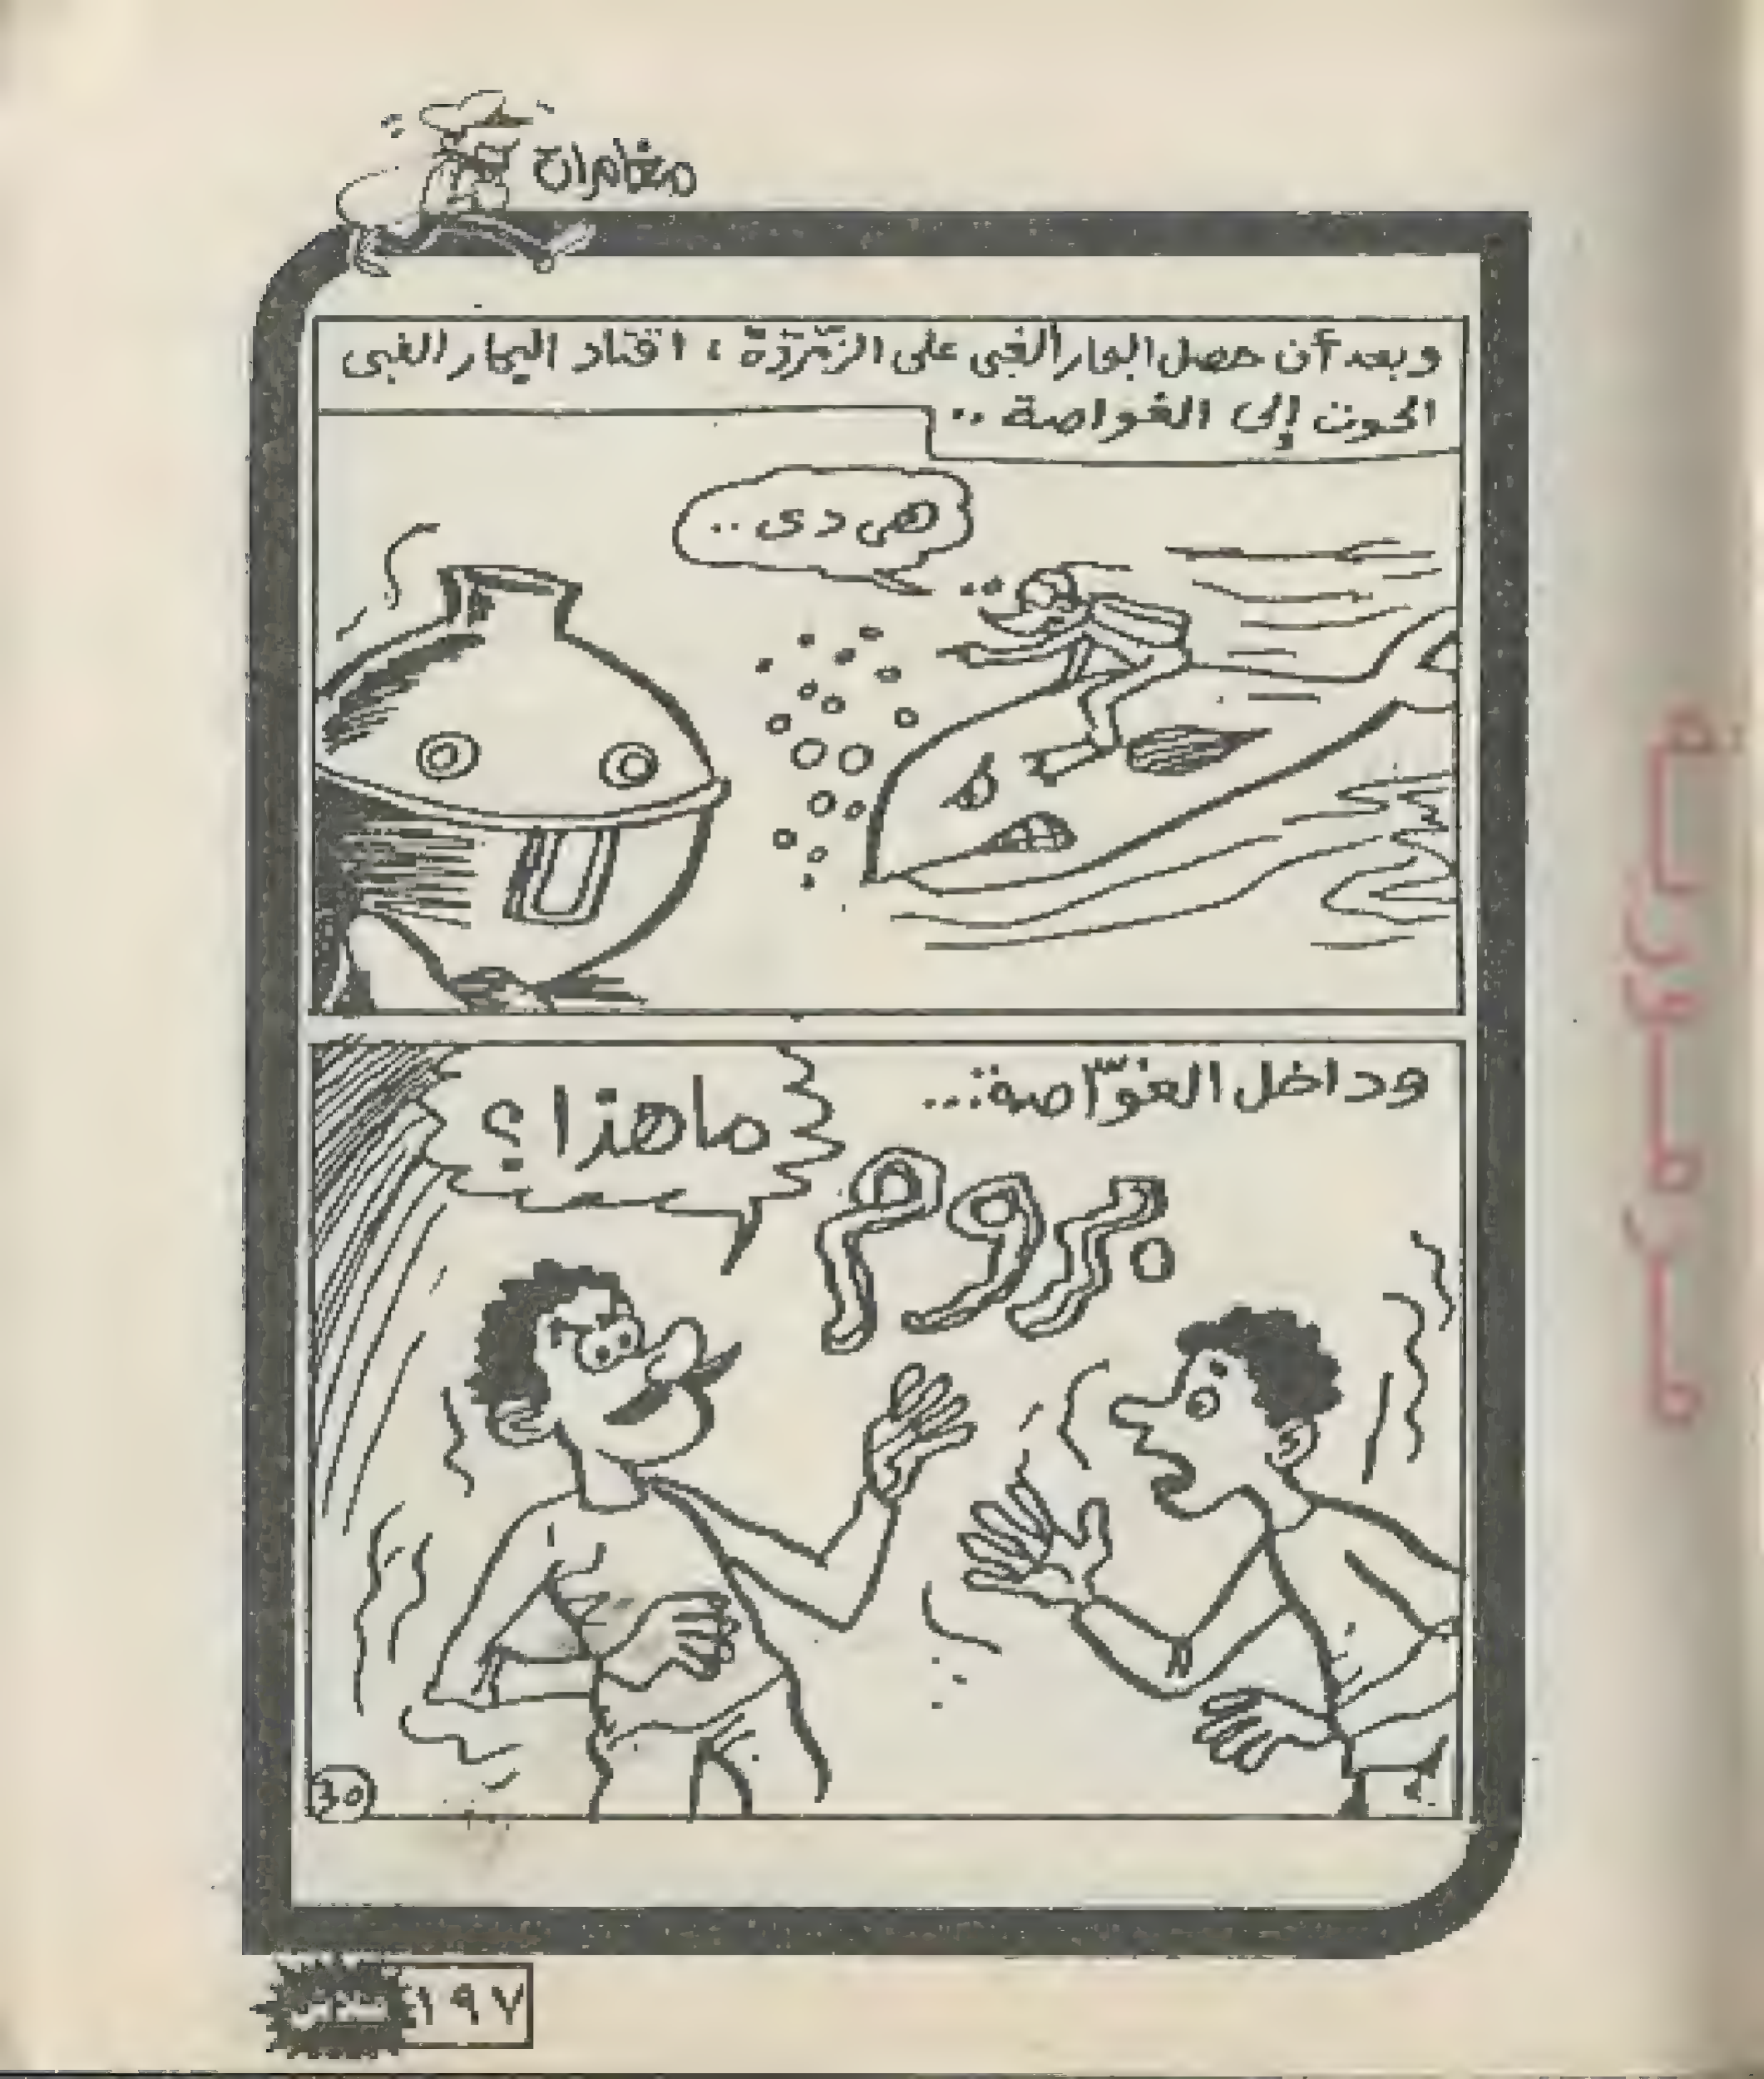 مغامرات
وبعد أن حصل البحار الغبى على الزمّردة ، اقتاد البحار الغبى
الحوت إلى الغواصة ..
هى دى ..
وداخل الغوّاصة...
ما هذا ؟
٣٥
١٩٧
فلاش